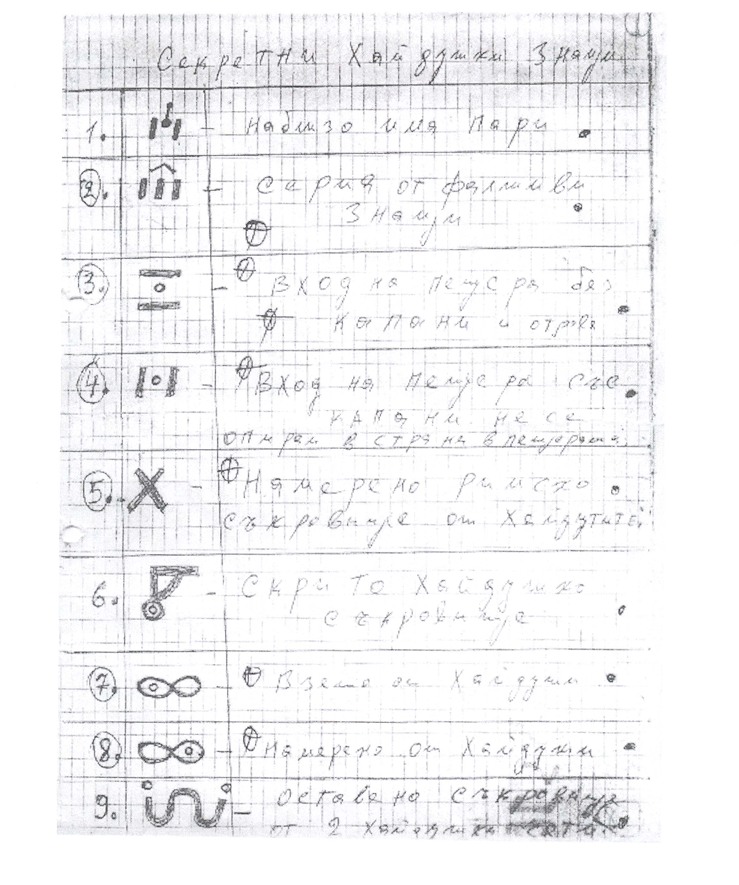 Секретни Хайдушки Знаци
1. – Наблизо има пари
2. – серия от фалшиви
знаци
3. – Вход на пещера без
капани и отрова
4. – Вход на пещера със
капани не се
опирай в страна в пещерата
5. – Намерено римско
съкровище от Хайдутите
6. – Скрито Хайдушко
съкровище
7. – Взето от Хайдути
8. – Намерено от Хайдути
9. – оставено съкровище
от 2 хайдушки чети.